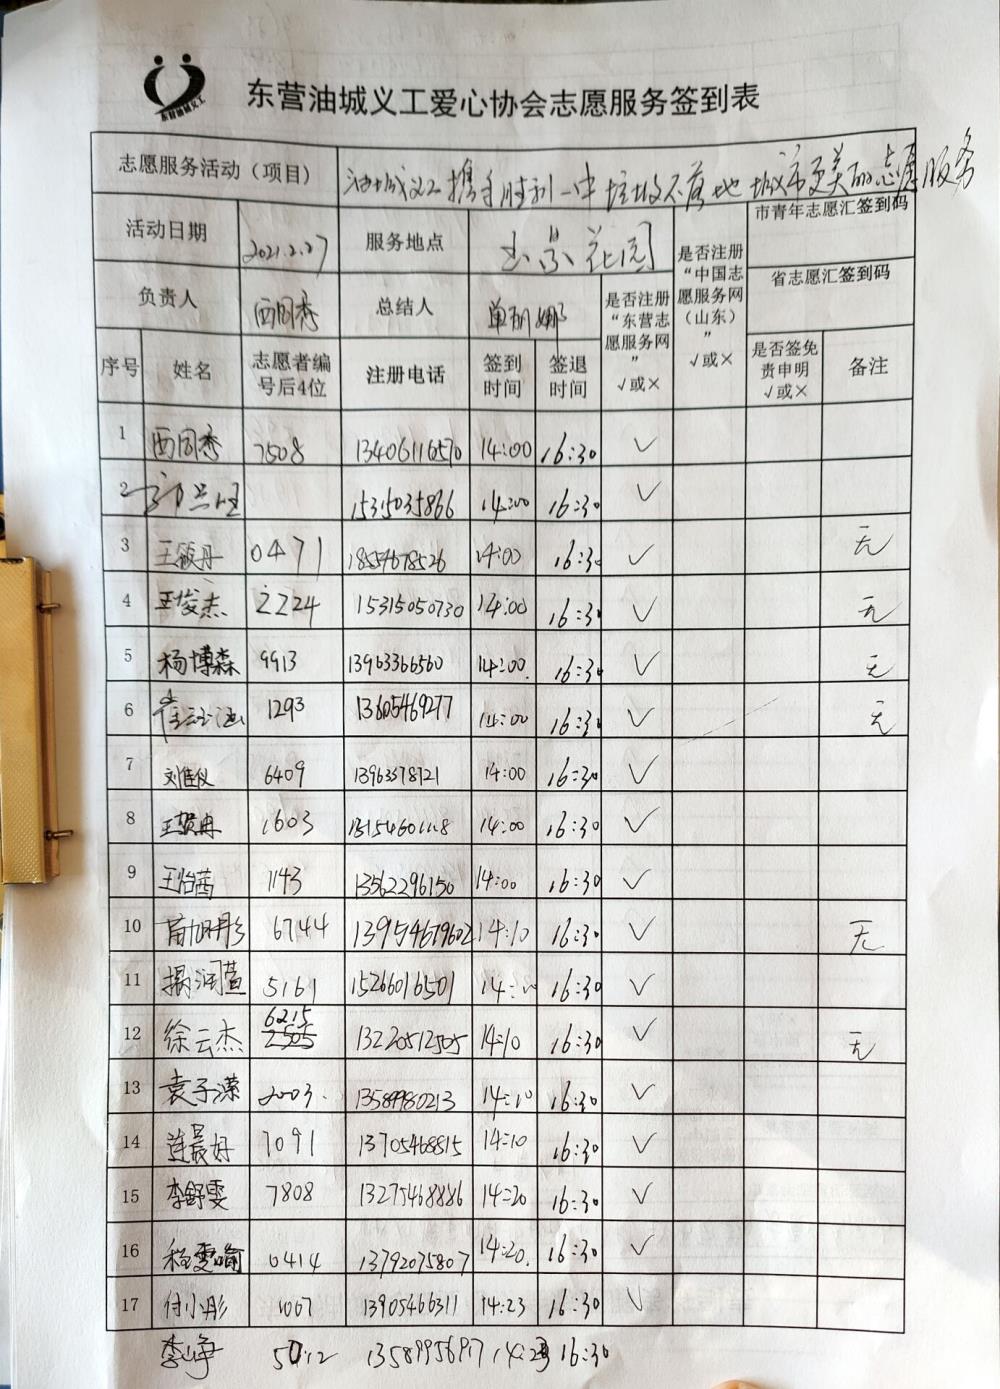 东营油城义工
东营油城义工爱心协会志愿服务签到表
志愿服务活动（项目） 油城义工携手胜利一中垃圾不落地 城市更美丽志愿服务
活动日期 2021.2.27 服务地点 玉景花园 是否注册“中国志愿服务网（山东）” √或× 市青年志愿汇签到码
负责人 西同秀 总结人 单丽娜 是否注册“东营志愿服务网” √或× 省志愿汇签到码
序号 姓名 志愿者编号后4位 注册电话 签到时间 签退时间 是否签免责申明 √或× 备注
1 西同秀 7508 13406116570 14:00 16:30 √
2 15315035866 14:00 16:30 √
3 王筱丹 0471 18554678526 14:00 16:30 √ 无
4 王俊杰 2224 15315050730 14:00 16:30 √ 无
5 杨博森 9913 13963366560 14:00. 16:30 √ 无
6 1293 13605469277 14:00 16:30 √ 无
7 刘佳仪 6409 13963378721 14:00 16:30 √
8 王贺冉 1603 14:00 16:30 √
9 王怡茜 1143 13562296150 14:00 16:30 √
10 6744 13954679602 14:10 16:30 √ 无
11 杨润萱 5161 15266016501 14:00 16:30 √
12 徐云杰 6215 2505 13220512505 14:10 16:30 √ 无
13 袁子溁 2003. 13589980213 14:10 16:30 √
14 连晨好 7091 13705468815 14:10 16:30 √
15 李舒雯 7808 13275468886 14:20 16:30 √
16 程雯喻 0414 13792075807 14:20. 16:30 √
17 付小彤 1007 13905466311 14:23 16:30 √
李峥 5012 13589956917 14:23 16:30